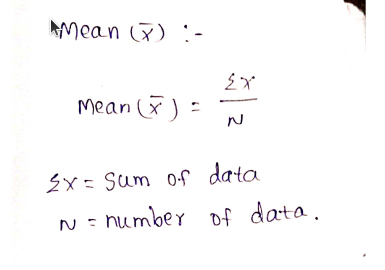 Mean (x̄) :-
Mean (x̄) = Σx / N
Σx = Sum of data
N = number of data.